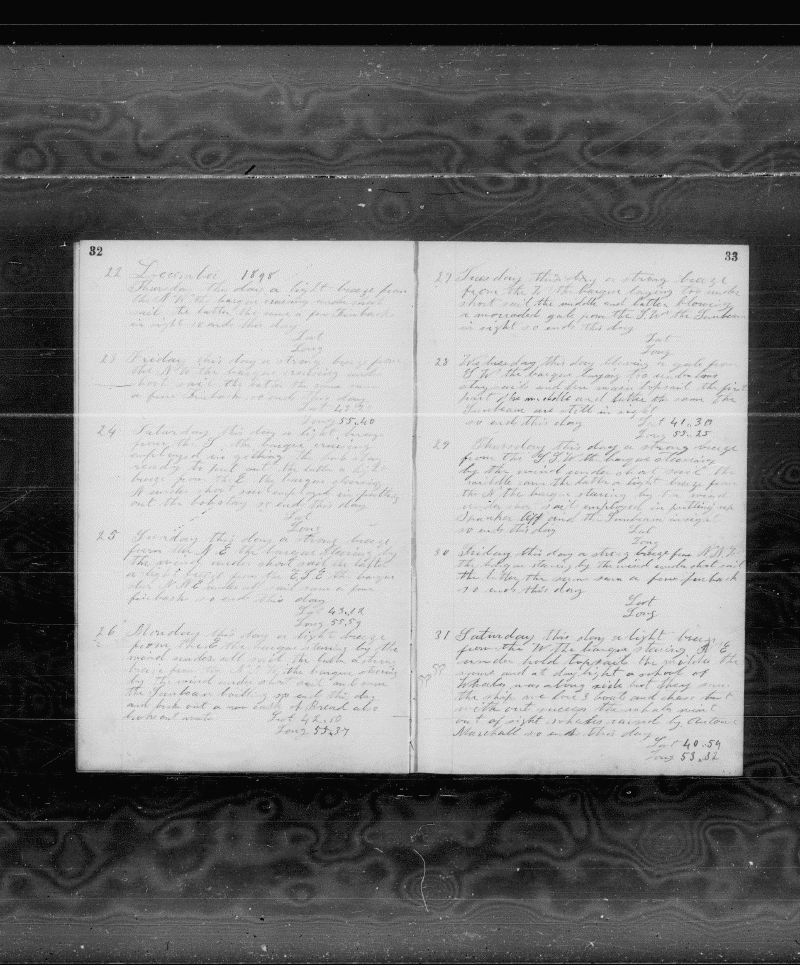 32
22 December 1898
Thursday this day a light breeze from
the N W the barque cruising under short
sail the latter the same a few Finback
in sight so ends this day
Lat
Long
23 Friday this day a strong breeze from
the N W the barque cruising under
short sail the latter the same saw
a few Finback so ends this day
Lat 42
Long 55,40
24 Saturday this day a light breeze
from the S the barque cruising
employed in getting the bob stay
ready to put out the latter a light
breeze from the E the barque steering
N under short sail employed in putting
out the bobstay so ends this day
Lat
Long
25 Sunday this day a strong breeze
from the N E the barque steering by
the wind under short sail the latter
a light breeze from the E S E the barque
N N E under sail saw a few
finback so ends this day
Lat 43,12
Long 55,59
26 Monday this day a light breeze
from the E the barque steering by the
wind under all sail the latter a strong
breeze from the the barque steering
by the wind under short sail and saw
the Sunbeam boiling so ends this day
and broke out a new cask of Bread also
broke out
Lat 42,10
Long 55,37
33
27 Tuesday this day a strong breeze
from the W the barque laying too under
short sail the middle and latter blowing
a moderate gale from the S.W the Sunbeam
in sight so ends this day
Lat
Long
28 Wednesday this day blowing a gale from
S W the barque laying to under
stay sail and fore main top sail the first
part of the middle and latter the same the
Sunbeam are still in sight
so ends this day Lat 41,30
Long 55,25
29 Thursday this day a strong breeze
from the S S W the barque steering
by the wind under short sail the
middle same the latter a light breeze from
the N the barque steering by the wind
under short sail employed in putting up
Spanker Gaff and the Sunbeam in sight
so ends this day Lat
Long
30 Friday this day a strong breeze from N N W
the barque steering by the wind under short sail
the latter the same saw a few finback
so ends this day
Lat
Long
31 Saturday this day a light breeze
from the W the barque steering N E
under hold topsails the middle the
same and at day light a school of
Whales was along side but they saw
the ship the boats and chase but
with out success the whale went
out of sight whales raised by
Marshall so ends this day
Lat 40,59
Long 53,32